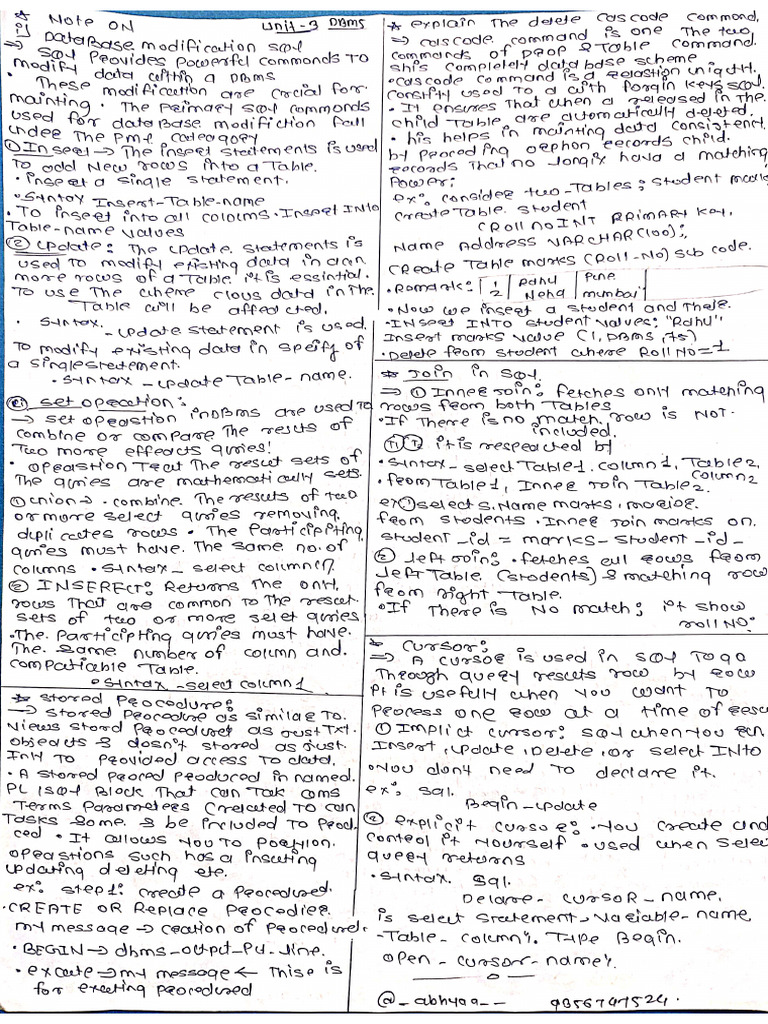 * Note ON Unit-3 DBMS
i) DataBase modification SQL
⇒ SQL Provides Powerful commands TO
modify data within a DBMS
• These modification are crucial for
mainting. The Primary SQL commonds
used for database modifiction fall
under The PML category
① Insert → The insert statements is used
To add New rows into a Table.
• insert a single statement.
• Syntax Insert-Table-name
• To insert into all coloums. Insert INTO
Table-name values
② update: The update statements is
used to modify existing data in a
more rows of a Table it is essintial.
To use The where clous data in The
Table will be affected.
• Syntax
-update statement is used
To modify existing data in specify of
a single statement.
• Syntax - update Table-name.
set operation:
→ set operation in DBMS are used to
combine or compare The results of
Two more effects quries!
• opeastion Treat The result sets of
The quries are mathematically sets.
① union → . combine. The results of two
or more select quries removing.
duplicates rows. The Participiting
quries must have. The same no. of
columns • Syntax - select column(1)
② INSERECT: Returns The only,
rows That are common to The resust
sets of two or more selet quries
• The Participting quries must have.
The same number of column and.
compatiable Table.
• Syntax - select column1
* Stored Procedure:
→ stored Procedure as similar to.
views stored Procedures as just Txt.
objects & doesn't stored as just.
Inly to Provided access to data.
• A stored Proced Produced in named.
PL ISQL Block That can Tak
Terms Parameters (related to can
Tasks some. & be included to Prod
ced • It allows you to
opeastions such has a inseting
updating deleting etc.
ex: step1: create a Procedured.
• CREATE OR Replace Procedies.
my message → ceation of Procedures
• BEGIN → dbms-output-Put-line.
• excute → my message ← Thise is
for execting procedured
* explain The delete cascode command.
⇒ cascode command is one The two
commands of DROP & Table command.
shis completely database scheme
• cascode command is a
constity used to a with forgin key SQL.
• It ensures that when a released in The.
child Table are automatically deleted.
• his helps in mainting data consistenct.
by Pereceding orephon records child.
records That no longix have a matching
Power:
ex: consider two-Tables; student marks
create Table student
(Roll no INT PRIMARY KEY,
Name Address VARCHAR(100);
CREATE Table marks (Roll-No) sub code.
• Romark: 1 Radhu Pune
2 Neha mumbai
• Now we insert a student and There.
• INSERT INTO student values: "Radhu"
Insert marks value (1, DBMS, 75)
• Delete from student where Roll NO=1
* Join in SQL.
⇒ ① Inner join: fetches only matching
rows from both Tables
• If there is no match row is NOT.
included.
T1 T2 it is respeacted by
• Syntax - select Table1. column1, Table2.
column2
• from Table1, Inner Join Table2.
ex ① select s. Name marks, marks.
from students. Inner Join marks on.
student_id = marks-student-id-
② left join: • fetches all rows from
left Table (students) & matching row
from right Table.
• If There is No match; it show
roll NO:
* Cursor:
⇒ A cursor is used in SQL TO go
Through query results row by row
It is usefully when you want to
process one row at a time of
① Implict cursor: SQL when you
Insert, update, Delete, or select INTO
• You dont need to declare it.
ex: sql.
Begin-update
② explicit cursor: • You create and
control it yourself • used when selec
query returns
• Syntax. sql.
Delare - cursor-name,
is select statement - variable-name,
-Table-column%. Type Begin.
open - cursor-name%.
@_abhyaa__ 9356747524.